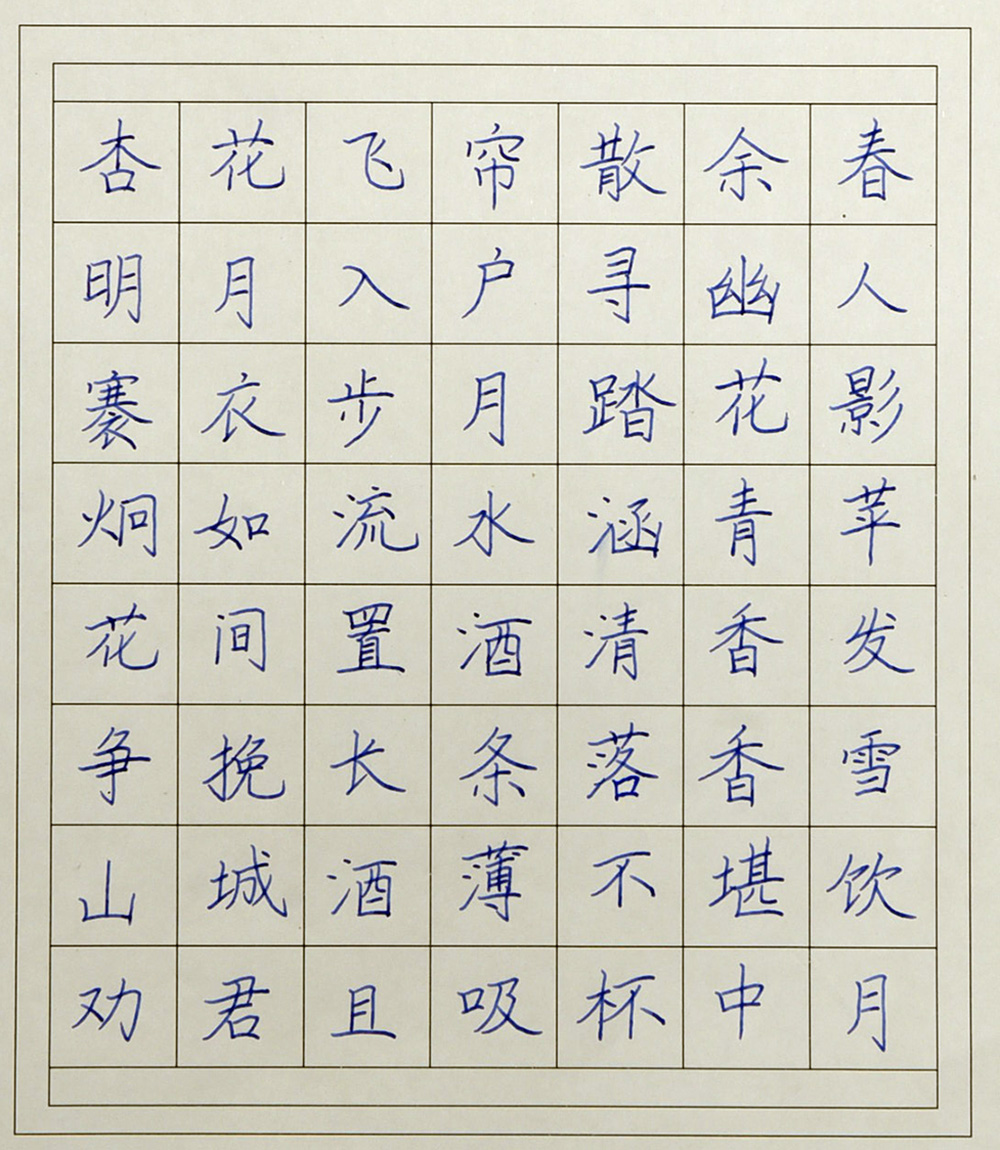 杏花飞帘散余春
明月入户寻幽人
褰衣步月踏花影
炯如流水涵青苹
花间置酒清香发
争挽长条落香雪
山城酒薄不堪饮
劝君且吸杯中月